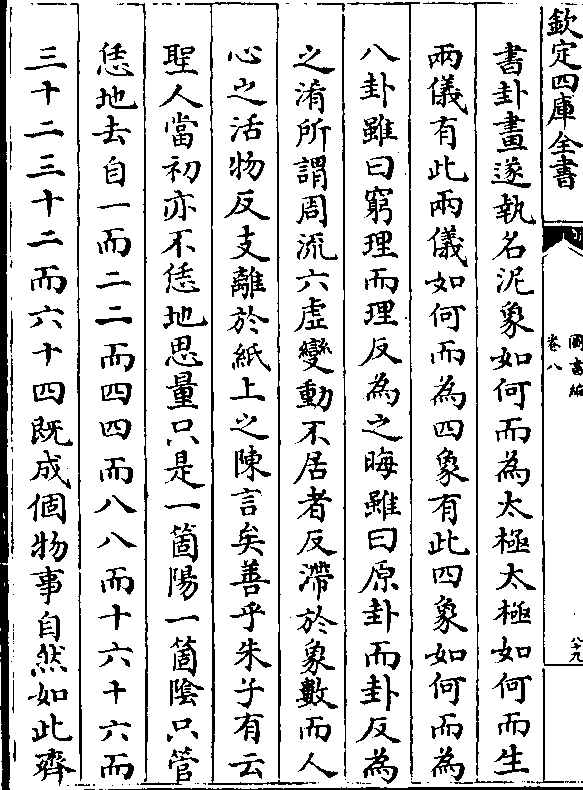 欽定四庫全書
圖書編
卷八
八十九
書卦畫遂執名泥象如何而為太極太極如何而生
兩儀有此兩儀如何而為四象有此四象如何而為
八卦雖曰窮理而理反為之晦雖曰原卦而卦反為
之淆所謂周流六虛變動不居者反滯於象數而人
心之活物反支離於紙上之陳言矣善乎朱子有云
聖人當初亦不恁地思量只是一箇陽一箇陰只管
恁地去自一而二二而四四而八八而十六十六而
三十二三十二而六十四既成個物事自然如此齊